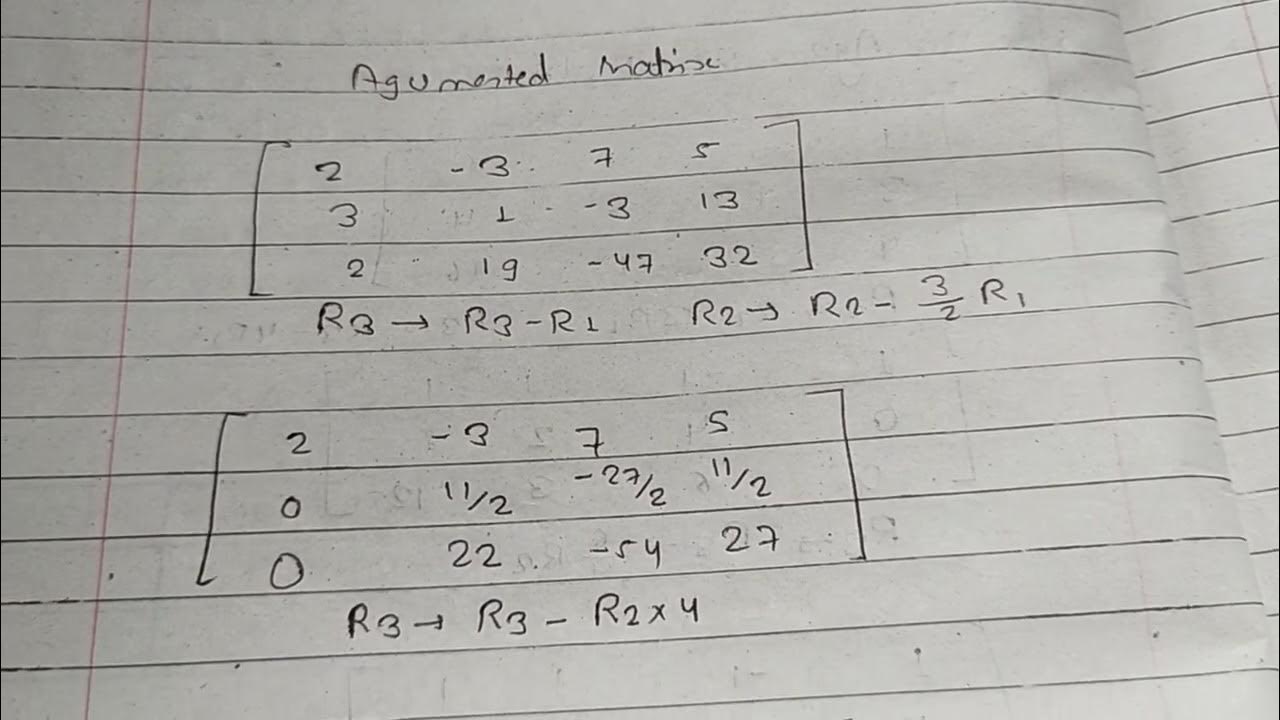 Agumented Matrix
2 -3 7 5
3 1 -3 13
2 19 -47 32
R3 → R3 - R1 R2 → R2 - 3/2 R1
2 -3 7 5
0 11/2 -27/2 11/2
0 22 -54 27
R3 → R3 - R2 x 4